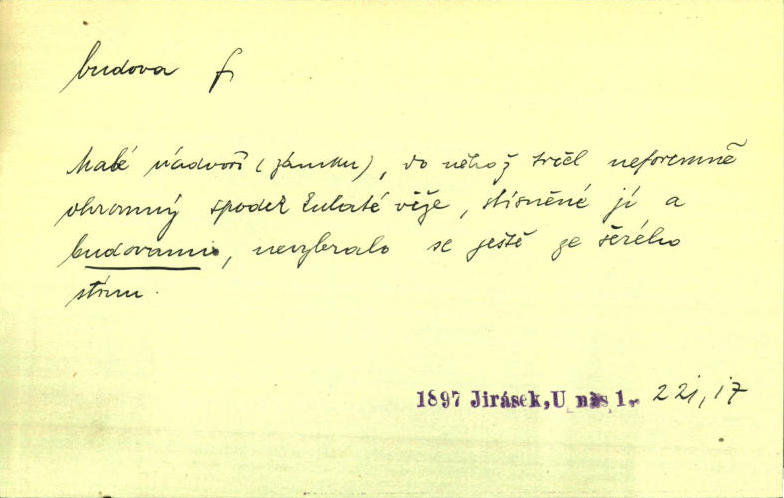 budova f.
Malé nádvoří (zámku), do něhož trčel neforemně
ohromný spodek kulaté věže, stísněné jí a
budovami, nevybralo se ještě ze šerého
stínu.
1897 Jirásek, U nás 1. 221, 17